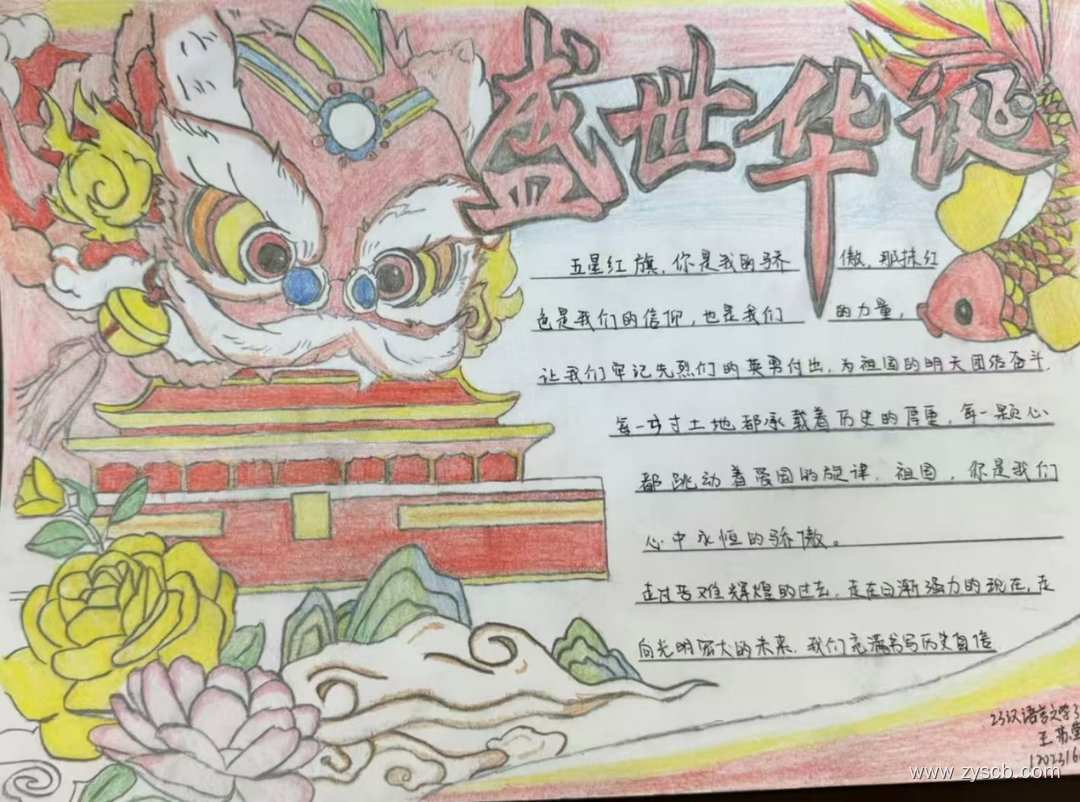 盛世华诞
五星红旗,你是我的骄傲,那抹红
色是我们的信仰,也是我们的力量,
让我们牢记先烈们的英勇付出,为祖国的明天团结奋斗.
每一寸土地都承载着历史的厚重,每一颗心
都跳动着爱国的旋律.祖国,你是我们
心中永恒的骄傲。
走过苦难辉煌的过去,走在日渐强力的现在,走
向光明宏大的未来.我们充满书写历史自信.
23汉语言文学3
王
1202316
www.zyscb.com